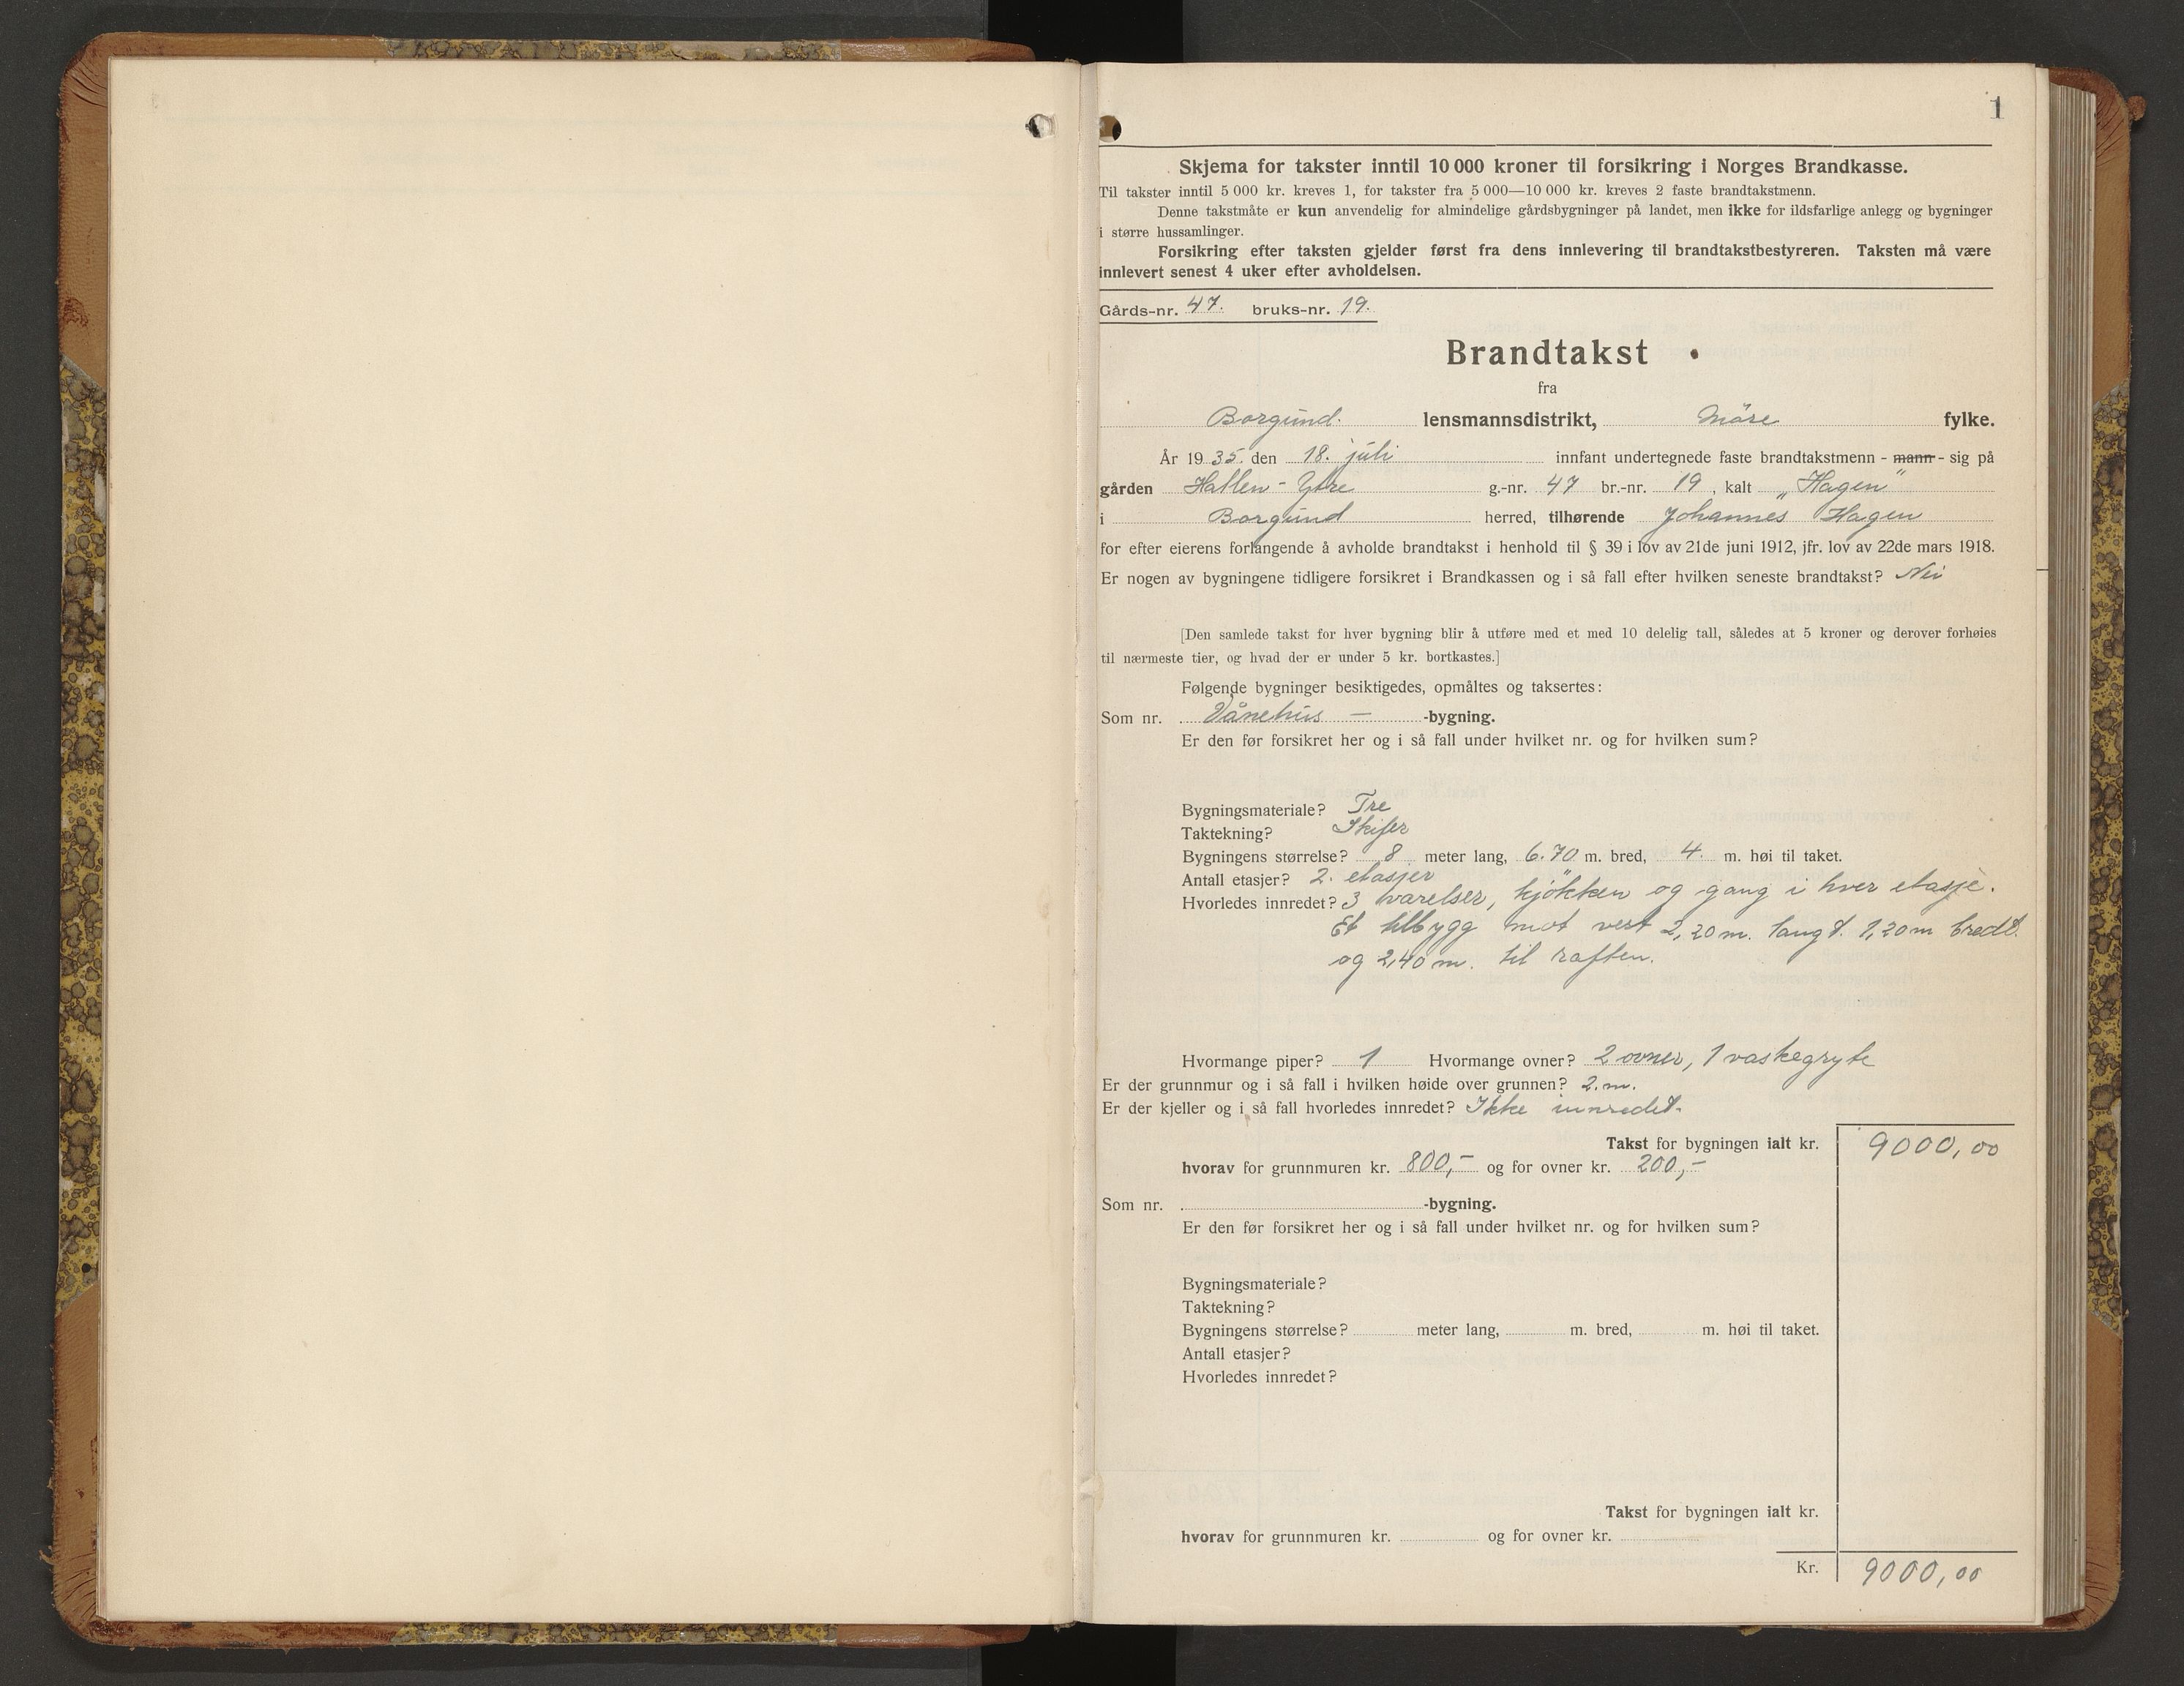 1
Skjema for takster inntil 10 000 kroner til forsikring i Norges Brandkasse.
Til takster inntil 5 000 kr. kreves 1, for takster fra 5 000—10 000 kr. kreves 2 faste brandtakstmenn.
Denne takstmåte er kun anvendelig for almindelige gårdsbygninger på landet, men ikke for ildsfarlige anlegg og bygninger
i større hussamlinger.
Forsikring efter taksten gjelder først fra dens innlevering til brandtakstbestyreren. Taksten må være
innlevert senest 4 uker efter avholdelsen.
Gårds-nr. 47. bruks-nr. 19.
Brandtakst
fra
Borgund. lensmannsdistrikt, Møre fylke.
År 1935. den 18. juli innfant undertegnede faste brandtakstmenn - mann - sig på
gården Hatlen - Ytre g.-nr. 47 br.-nr. 19, kalt „Hagen"
i Borgund herred, tilhørende Johannes Hagen
for efter eierens forlangende å avholde brandtakst i henhold til § 39 i lov av 21de juni 1912, jfr. lov av 22de mars 1918.
Er nogen av bygningene tidligere forsikret i Brandkassen og i så fall efter hvilken seneste brandtakst? Nei
[Den samlede takst for hver bygning blir å utføre med et med 10 delelig tall, således at 5 kroner og derover forhøies
til nærmeste tier, og hvad der er under 5 kr. bortkastes.]
Følgende bygninger besiktigedes, opmåltes og taksertes:
Som nr. Vånehus — -bygning.
Er den før forsikret her og i så fall under hvilket nr. og for hvilken sum?
Bygningsmateriale? Tre
Taktekning? Skifer
Bygningens størrelse? 8 meter lang, 6.70 m. bred, 4. m. høi til taket.
Antall etasjer? 2. etasjer
Hvorledes innredet? 3 varelser, kjökken og gang i hver etasje.
Et tilbygg mot vest 2,20 m. langt. 1,20 m bredt.
og 2,40 m. til raften.
Hvormange piper? 1 Hvormange ovner? 2 ovner, 1 vaskegryte
Er der grunnmur og i så fall i hvilken høide over grunnen? 2. m.
Er der kjeller og i så fall hvorledes innredet? Ikke innredet.
Takst for bygningen ialt kr. 9000,00
hvorav for grunnmuren kr. 800,- og for ovner kr. 200,-
Som nr. -bygning.
Er den før forsikret her og i så fall under hvilket nr. og for hvilken sum?
Bygningsmateriale?
Taktekning?
Bygningens størrelse? meter lang, m. bred, m. høi til taket.
Antall etasjer?
Hvorledes innredet?
Takst for bygningen ialt kr.
hvorav for grunnmuren kr. og for ovner kr.
Kr. 9000,00